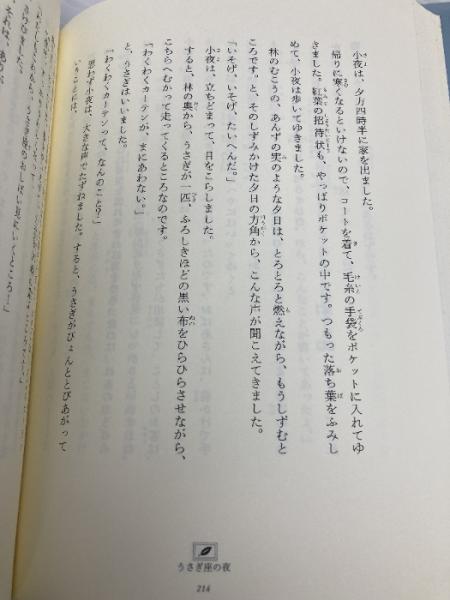 小夜は、夕方四時半に家を出ました。
帰りに寒くなるといけないので、コートを着て、毛糸の手袋をポケットに入れてゆ
きました。紅葉の招待状も、やっぱりポケットの中です。つもった落ち葉をふみし
めて、小夜は歩いてゆきました。
林のむこうの、あんずの実のような夕日は、とろとろと燃えながら、もうしずむと
ころです。と、そのしずみかけた夕日の方角から、こんな声が聞こえてきました。
「いそげ、いそげ、たいへんだ。」
小夜は、立ちどまって、目をこらしました。
すると、林の奥から、うさぎが一匹、ふろしきほどの黒い布をひらひらさせながら、
こちらへむかって走ってくるところなのです。
「わくわくカーテンが、まにあわない。」
と、うさぎはいいました。
「わくわくカーテンって、なんのこと？」
思わず小夜は、大きな声でたずねました。すると、うさぎがぴょんととびあがって
いうことには、
うさぎ座の夜
214